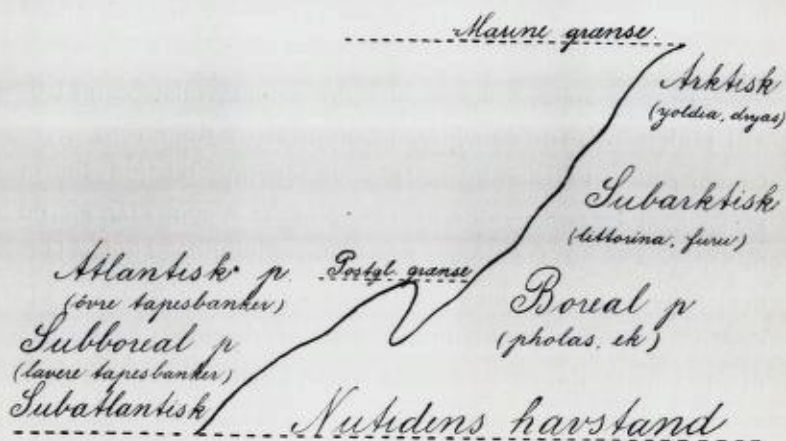 Marine grænse.
Arktisk
(yoldia, dryas)
Subarktisk
(littorina, furu)
Atlantisk p.
(övre tapesbanker)
Postgl. grænse
Boreal p
(pholas, ek)
Subboreal p
(lavere tapesbanker)
Subatlantisk
Nutidens havstand